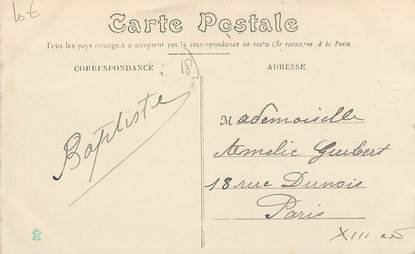 10€
Carte Postale
Tous les pays étrangers n'acceptent pas la correspondance au recto (Se renseigner à la Poste
CORRESPONDANCE
18
ADRESSE
Baptiste
Mademoiselle
Amelie Guibert
18 rue Dunois
Paris
XIII